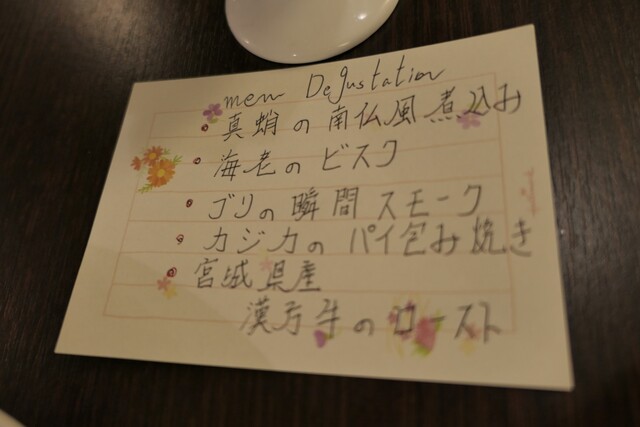 menu Degustation
真蛸の南仏風煮込み
海老のビスク
ゴリの瞬間スモーク
カジカのパイ包み焼き
宮城県産
漢方牛のロースト